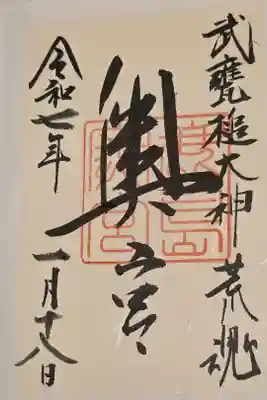 武甕槌大神 荒魂
奥宮
令和七年 一月十八日